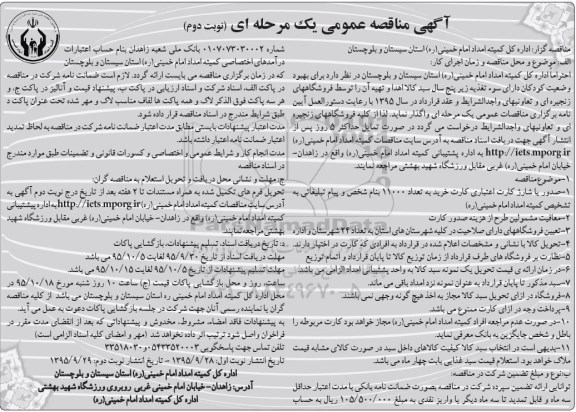 آگهی مناقصه عمومی یک مرحله ای (نوبت دوم)
مناقصه گزار: اداره کل کمیته امداد امام خمینی(ره) استان سیستان و بلوچستان
الف: موضوع و محل مناقصه و زمان اجرای کار:
احتراما اداره کل کمیته امداد امام خمینی(ره) استان سیستان و بلوچستان در نظر دارد برای بهبود
وضعیت کودکان دارای سوء تغذیه زیر پنج سال سبد کالا اهدا و تهیه آن را توسط فروشگاههای
زنجیره ای و تعاونیهای واجدالشرایط و عقد قرارداد در سال ۱۳۹۵ با رعایت دستورالعمل آیین
نامه برگزاری مناقصات عمومی یک مرحله ای واگذار نماید. لذا از کلیه فروشگاههای زنجیره
ای و تعاونیهای واجدالشرایط درخواست می گردد در صورت تمایل حداکثر ۷ روز پس از
انتشار آگهی جهت دریافت اسناد مناقصه به آدرس سایت مناقصات کمیته امداد امام خمینی(ره)
http://iets.mporg.ir به اداره پشتیبانی کمیته امداد امام خمینی(ره) واقع در زاهدان-
خیابان امام خمینی(ره) غربی مقابل ورزشگاه شهید بهشتی مراجعه نمایند.
۱-موضوع مناقصه
۱-صدور یا شارژ کارت اعتباری کارت خرید به تعداد ۱۱۰۰۰ بنام شخص و پیام تبلیغاتی به
تشخیص کمیته امداد امام خمینی(ره)
۲-معافیت مشمولین طرح از هزینه صدور کارت
۳-تعیین فروشگاههای دارای صلاحیت در کلیه شهرستان های استان به تعداد ۲۴ شهرستان و اداره
۴-تحویل کالا با نشانی و مشخصات اعلام شده در قرارداد به افرادی که کارت در اختیار دارند.
۵-نظارت بر فروشگاه های طرف قرارداد از زمان توزیع کالا تا پایان قرارداد و اتمام توزیع
۶-در زمان ارائه ی قیمت تحویل یک نمونه سبد کالا به واحد پشتیبانی امداد الزامی می باشد.
۷-سبد مذکور تا پایان قرارداد به عنوان نمونه نزد امداد باقی می ماند.
۸-فروشگاه در ازای تحویل سبد کالا مجاز به اخذ هیچ گونه وجهی نمی باشد.
۹-پرداخت وجه در ازای کارت ممنوع می باشد.
۱۰-در صورت عدم مراجعه افراد کمیته امداد امام خمینی(ره) مجاز خواهد بود کارت مربوطه را
باطل و شخص جایگزین به بانک معرفی نماید.
۱۱-بدیهی است در انتخاب سبد کالا کیفیت کالاهای داخل سبد در صورت کالای مشابه قیمت
ملاک خواهد بود استعلام قیمت سبد غذایی بابت چهار ماه می باشد.
ب: نوع و مبلغ تضمین شرکت در مناقصه:
توانایی ارائه تضمین سپرده شرکت در مناقصه بصورت ضمانت نامه بانکی با مدت اعتبار حداقل
سه ماه و قابل تمدید تا سه ماه دیگر یا واریز نقدی به مبلغ ۱۰۵/۵۰۰/۰۰۰ ریال به حساب
شماره ۰۱۰۷۰۷۳۰۳۰۰۰۲ بانک ملی شعبه زاهدان بنام حساب اعتبارات
درآمدهای اختصاصی کمیته امداد امام خمینی(ره) استان سیستان و بلوچستان
که در زمان برگزاری مناقصه می بایست ارائه گردد. لازم است ضمانت نامه شرکت در مناقصه
در پاکت الف، اسناد شرکت و اسناد ارزیابی در پاکت ب، پیشنهاد قیمت و آنالیز در پاکت ج، و
هر سه پاکت فوق الذکر لاک و همه پاکت ها لفاف مناسب لاک و مهر شده تحت عنوان پاکت د
طبق شرایط مندرج در اسناد مناقصه قرار داده شود.
مدت اعتبار پیشنهادات بایستی مطابق مدت اعتبار ضمانت نامه شرکت در مناقصه به لحاظ تمدید
اعتبار ضمانت نامه اعتبار داشته باشد.
مدت انجام کار و شرایط عمومی و اختصاصی و کسورات قانونی و تضمینات طبق موارد مندرج
در اسناد مناقصه
ج: مهلت و نشانی محل دریافت و تحویل استعلام به مناقصه گران:
تحویل فرم های تکمیل شده به همراه مستندات تا ۲ هفته بعد از تاریخ درج نوبت دوم آگهی به
آدرس سایت مناقصات کمیته امداد امام خمینی(ره) http://iets.mporg.ir به اداره پشتیبانی
کمیته امداد امام خمینی(ره) واقع در زاهدان- خیابان امام خمینی(ره) غربی مقابل ورزشگاه شهید
بهشتی مراجعه نمایند.
د: تاریخ دریافت اسناد، تسلیم پیشنهادات، بازگشایی پاکات
مهلت دریافت اسناد از تاریخ ۹۵/۹/۳۰ لغایت ۹۵/۱۰/۵ می باشد
مهلت تسلیم پیشنهادات از تاریخ ۹۵/۱۰/۵ لغایت ۹۵/۱۰/۱۵ می باشد.
ساعت، روز و محل بازگشایی پاکات قیمت (ج) ساعت ۱۰ روز شنبه مورخ ۹۵/۱۰/۱۸ در
محل اداره کل کمیته امداد امام خمینی ره استان سیستان و بلوچستان می باشد. از کلیه مناقصه
گران یا نماینده رسمی آنان جهت شرکت در جلسه بازگشایی پاکات دعوت به عمل می آید.
به پیشنهادات فاقد امضاء، مشروط، مخدوش و پیشنهاداتی که بعد از انقضای مدت مقرر در
فراخوان واصل شود ترتیب اثر داده نخواهد شد. (مهر و امضای کلیه اسناد الزامی است)
تلفن تماس جهت پاسخگویی ۰۵۴۳۳۵۲۰۰۰۳-۳۳۵۱۸۰۳۰
تاریخ انتشار نوبت اول: ۱۳۹۵/۹/۲۸ – تاریخ انتشار نوبت دوم: ۱۳۹۵/۹/۲۹
اداره کل کمیته امداد امام خمینی(ره) استان سیستان و بلوچستان
آدرس: زاهدان-خیابان امام خمینی غربی روبروی ورزشگاه شهید بهشتی
اداره کل کمیته امداد امام خمینی(ره)